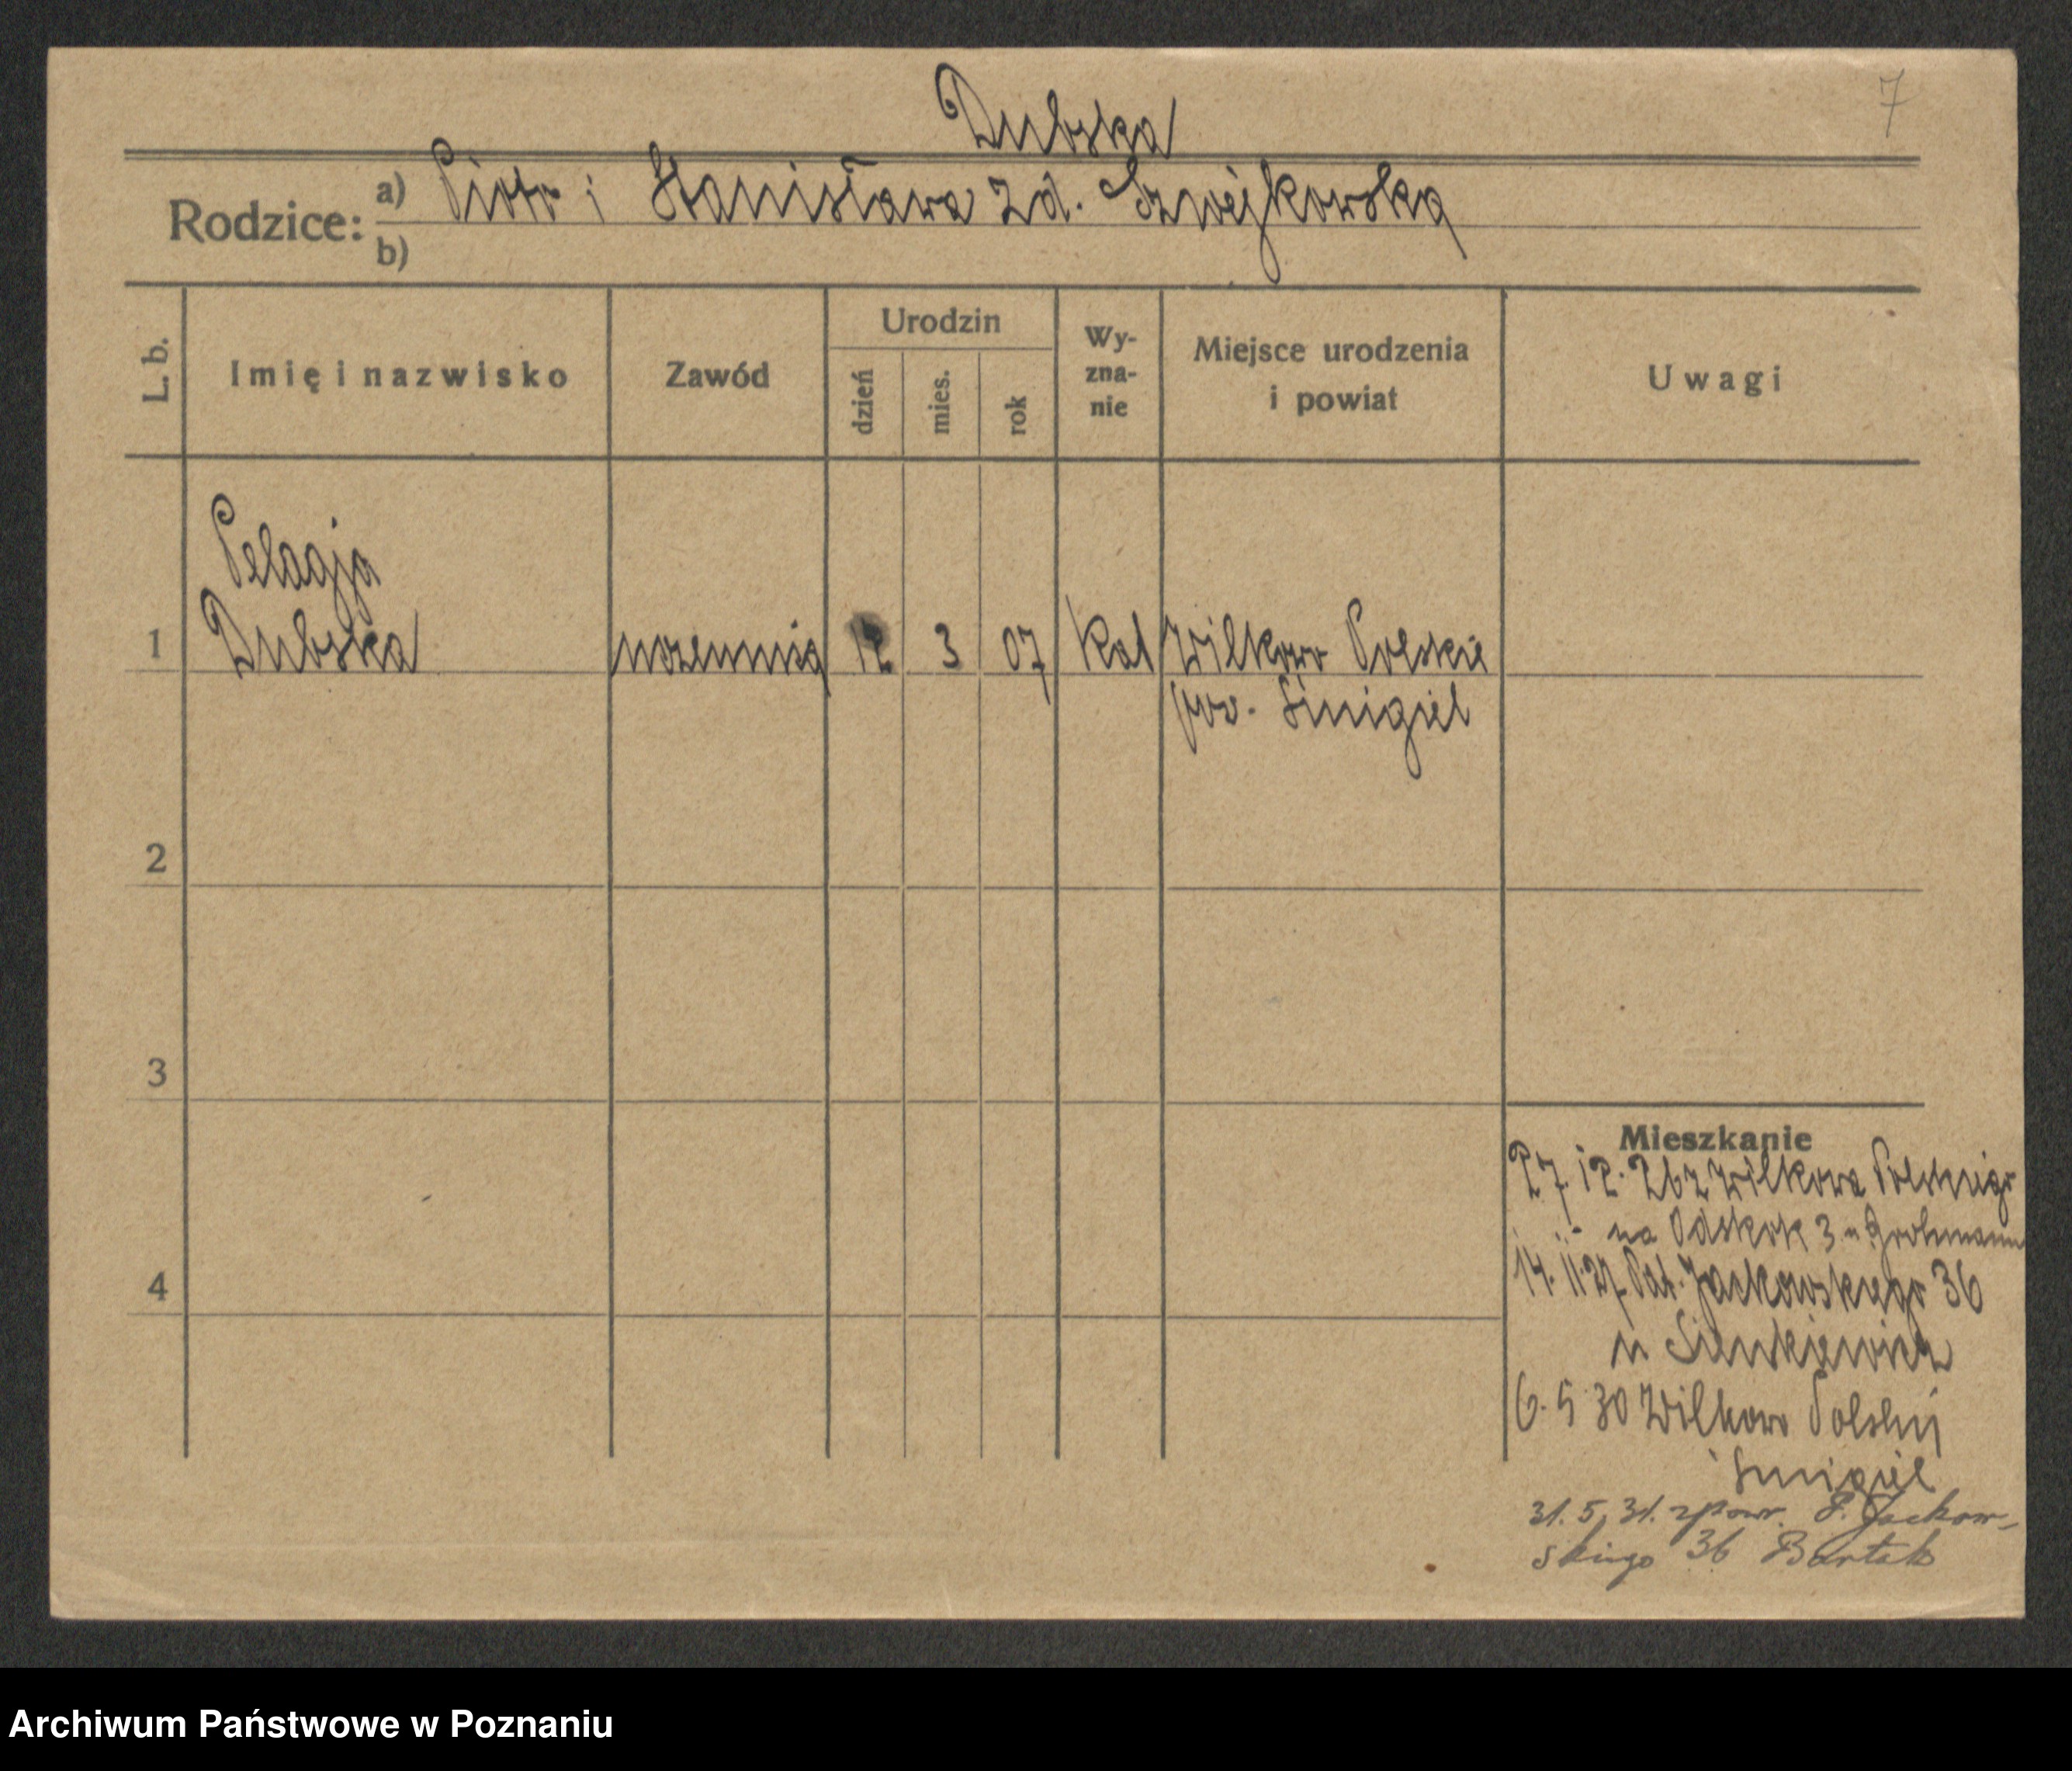 7
Dubska
Rodzice: a) Piotr i Stanisława zd. Szwejkowska
b)
L. b. Imię i nazwisko Zawód Urodzin dzień mies. rok Wy-zna-nie Miejsce urodzenia i powiat Uwagi
Pelagja
1 Dubska uczennica 12 3 07 Kat Wilkowo Polskie
pow. Śmigiel
2
3
Mieszkanie
27. 12. 26 z Wilkowa Polskiego
na 3 u Grohmann
4 14. 11. 27 Pat. Jackowskiego 36
u Sienkiewicz
6. 5 30 Wilkowo Polskie
Śmigiel
31. 5. 31. zpowr. P. Jackow-
skiego 36 Bartak
Archiwum Państwowe w Poznaniu